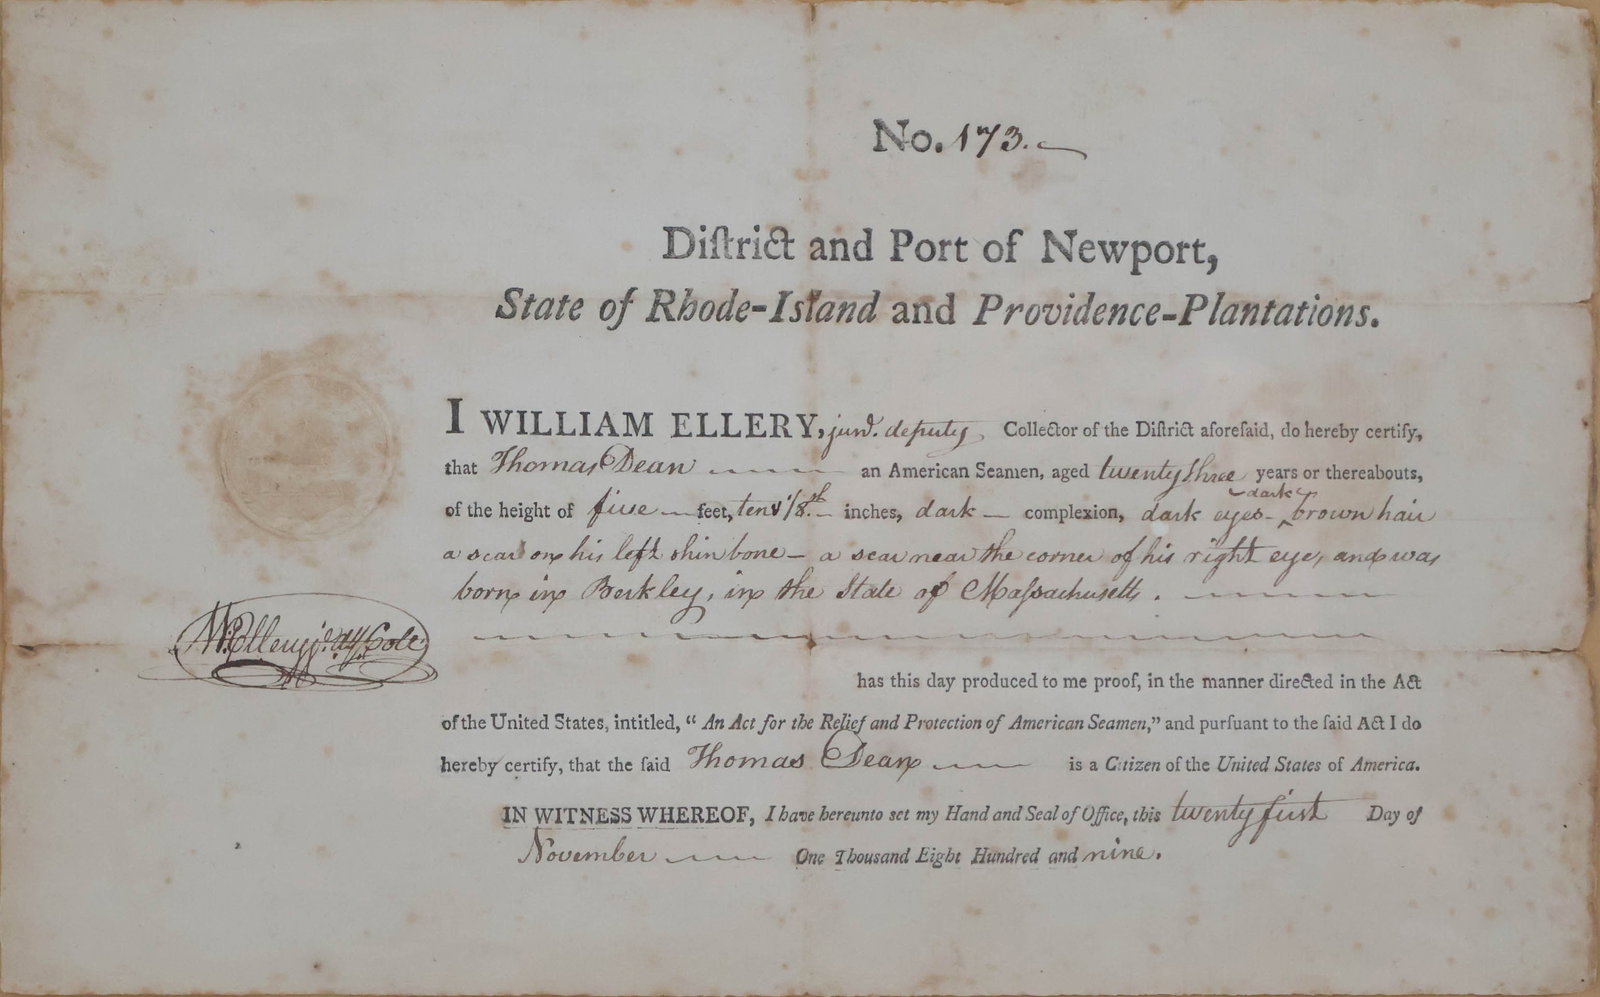 No. 173.
Diſtrict and Port of Newport,
State of Rhode-Island and Providence-Plantations.
I WILLIAM ELLERY, junr. deputy Collector of the Diſtrict aforeſaid, do hereby certify,
that Thomas Dean an American Seamen, aged twenty three years or thereabouts,
of the height of five feet, ten 1/8.th inches, dark complexion, dark eyes - dark brown hair
a scar on his left shin bone - a scar near the corner of his right eye, and was
born in Berkley, in the State of Maſsachusetts.
W. Ellery jr. Coll
has this day produced to me proof, in the manner directed in the Act
of the United States, intitled, “An Act for the Relief and Protection of American Seamen,” and purſuant to the ſaid Act I do
hereby certify, that the ſaid Thomas Dean is a Citizen of the United States of America.
IN WITNESS WHEREOF, I have hereunto set my Hand and Seal of Office, this twenty first Day of
November One Thousand Eight Hundred and nine.